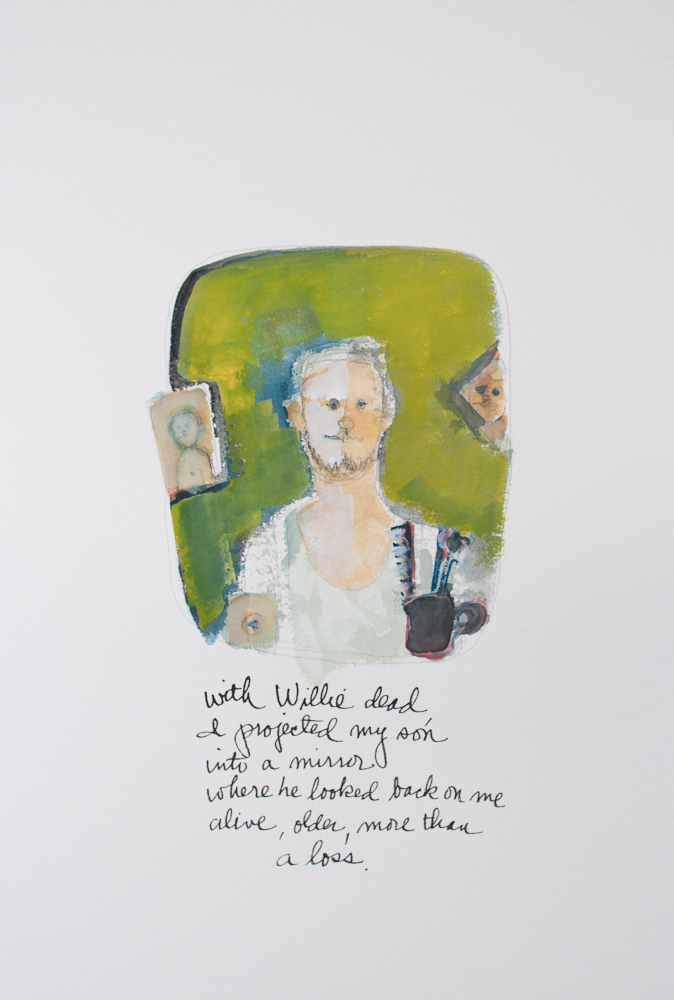 with Willie dead
I projected my son
into a mirror
where he looked back on me
alive, older, more than
a loss.